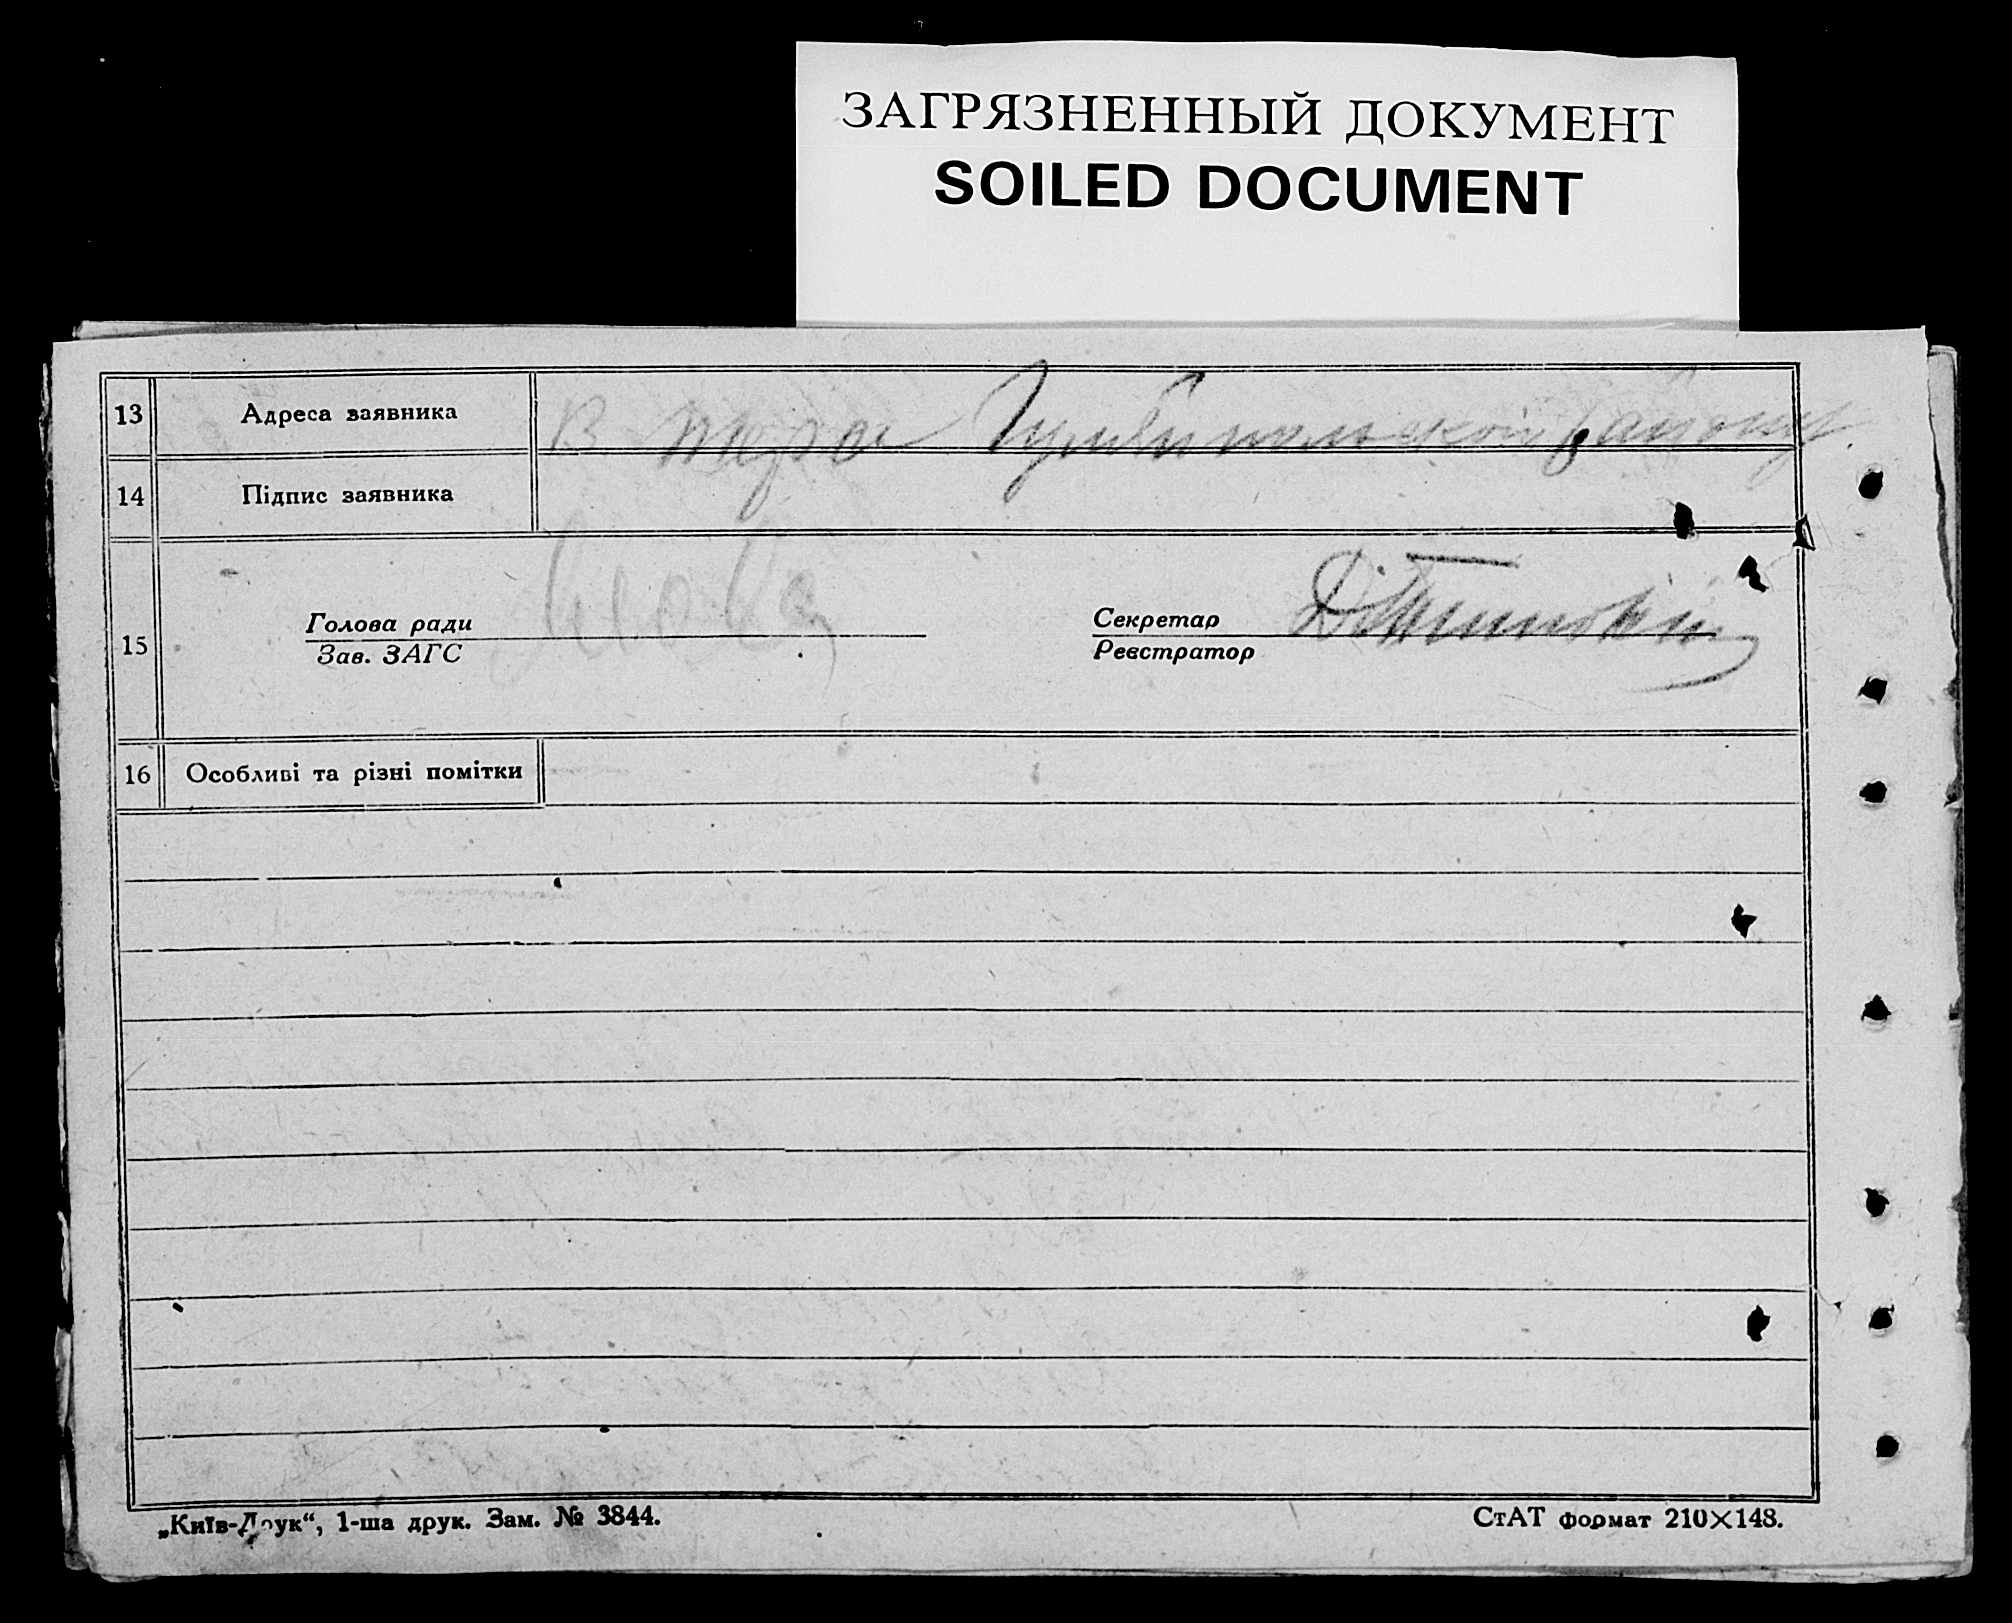 ЗАГРЯЗНЕННЫЙ ДОКУМЕНТ
SOILED DOCUMENT
13 Адреса заявника В
14 Підпис заявника
15 Голова ради Секретар
Зав. ЗАГС Реєстратор
16 Особливі та різні помітки
„Київ-Друк“, 1-ша друк. Зам. № 3844. СтАТ формат 210×148.